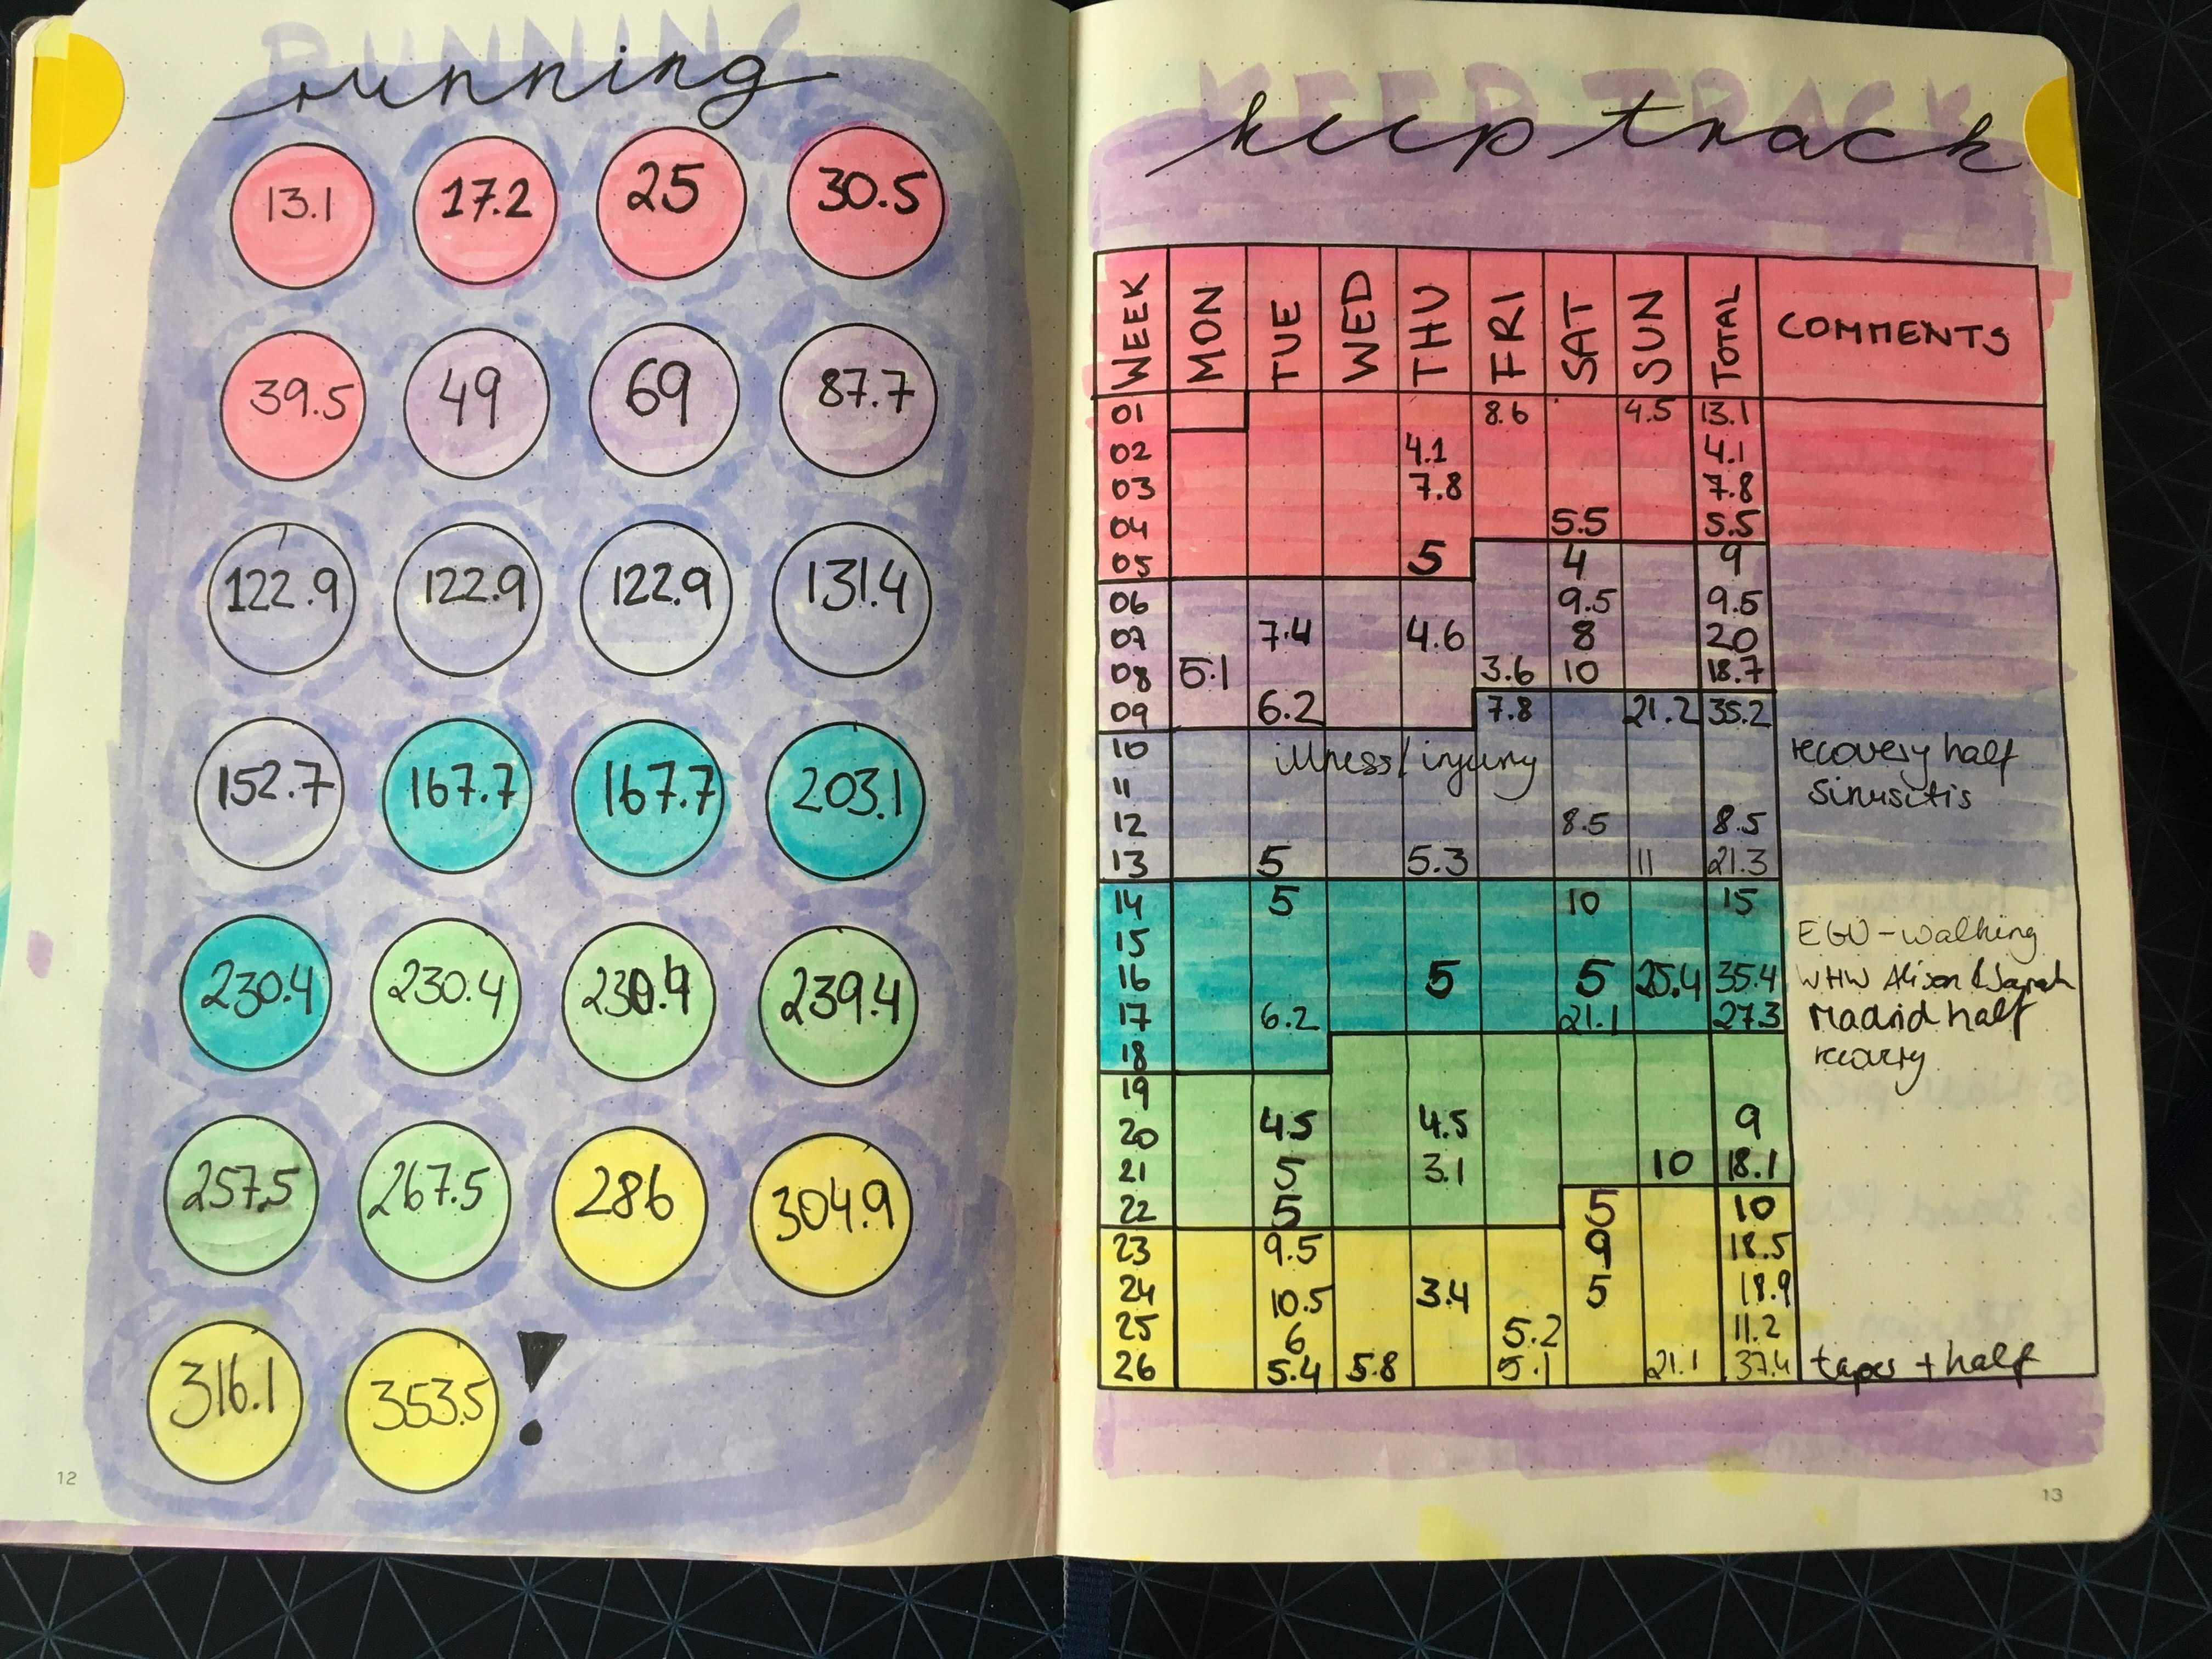 RUNNING
running
13.1 17.2 25 30.5
39.5 49 69 87.7
122.9 122.9 122.9 131.4
152.7 167.7 167.7 203.1
230.4 230.4 230.4 239.4
257.5 267.5 286 304.9
316.1 353.5 !
12
KEEP TRACK
keep track
WEEK MON TUE WED THU FRI SAT SUN TOTAL COMMENTS
01 8.6 4.5 13.1
02 4.1 4.1
03 7.8 7.8
04 5.5 5.5
05 5 4 9
06 9.5 9.5
07 7.4 4.6 8 20
08 5.1 3.6 10 18.7
09 6.2 7.8 21.2 35.2
10 illness/injury recovery half
11 Sinusitis
12 8.5 8.5
13 5 5.3 11 21.3
14 5 10 15
15 EGU-walking
16 5 5 25.4 35.4 WHW Alison &
17 6.2 21.1 27.3 Madrid half
18 recovery
19
20 4.5 4.5 9
21 5 3.1 10 18.1
22 5 5 10
23 9.5 9 18.5
24 10.5 3.4 5 18.9
25 6 5.2 11.2
26 5.4 5.8 5.1 21.1 37.4 taper + half
13